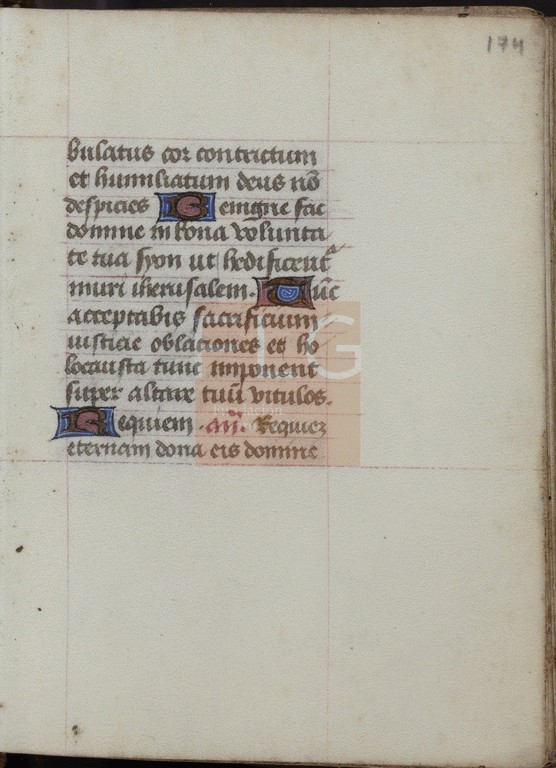 174
bulatus cor contrictum
et humiliatum deus nō
despicies Benigne fac
domine in bona volunta
te tua syon ut hedificentᵃ
muri iherusalem. Tūc
acceptabis sacrificium
iusticie oblaciones et ho
locausta tunc imponent
super altare tuū vitulos.
Requiem . añ. Requiez
eternam dona eis domine